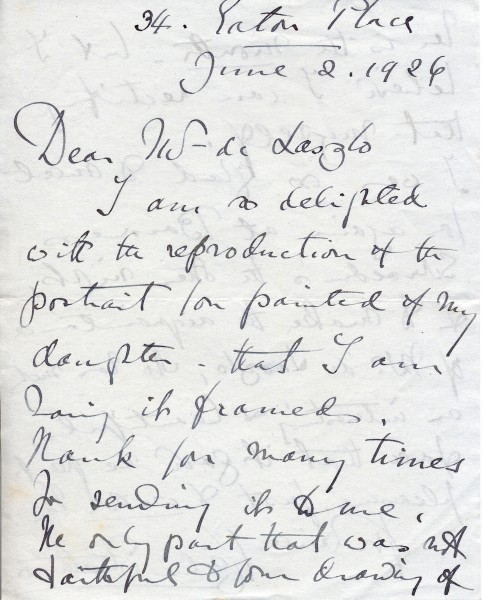 34. Eaton Place
June 2. 1926
Dear Mr de Laszlo
I am so delighted
with the reproduction of the
portrait you painted of my
daughter - that I am
having it framed.
Thank you many times
for sending it to me.
The only part that was not
faithful to your drawing of